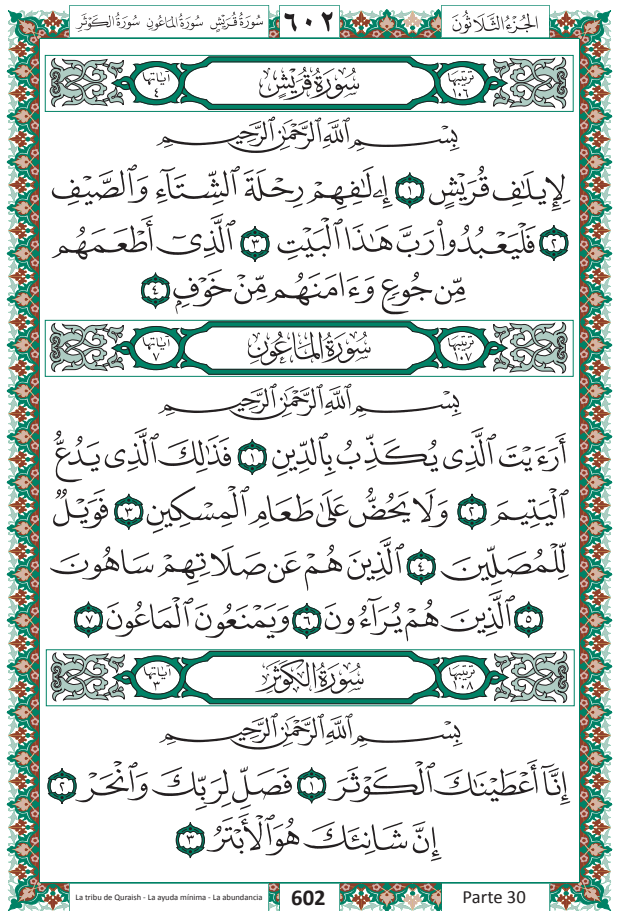 الجُزْءُ الثَّلَاثُونَ ٦٠٢ سُورَةُ قُرَيْشٍ سُورَةُ المَاعُونِ سُورَةُ الكَوْثَرِ
تَرتيبُها ١٠٦ سُورَةُ قُرَيْشٍ آيَاتُها ٤
بِسْمِ ٱللَّهِ ٱلرَّحْمَٰنِ ٱلرَّحِيمِ
لِإِيلَٰفِ قُرَيْشٍ ١ إِۦلَٰفِهِمْ رِحْلَةَ ٱلشِّتَآءِ وَٱلصَّيْفِ
٢ فَلْيَعْبُدُوا۟ رَبَّ هَٰذَا ٱلْبَيْتِ ٣ ٱلَّذِىٓ أَطْعَمَهُم
مِّن جُوعٍ وَءَامَنَهُم مِّنْ خَوْفٍۭ ٤
تَرتيبُها ١٠٧ سُورَةُ المَاعُونِ آيَاتُها ٧
بِسْمِ ٱللَّهِ ٱلرَّحْمَٰنِ ٱلرَّحِيمِ
أَرَءَيْتَ ٱلَّذِى يُكَذِّبُ بِٱلدِّينِ ١ فَذَٰلِكَ ٱلَّذِى يَدُعُّ
ٱلْيَتِيمَ ٢ وَلَا يَحُضُّ عَلَىٰ طَعَامِ ٱلْمِسْكِينِ ٣ فَوَيْلٌ
لِّلْمُصَلِّينَ ٤ ٱلَّذِينَ هُمْ عَن صَلَاتِهِمْ سَاهُونَ
٥ ٱلَّذِينَ هُمْ يُرَآءُونَ ٦ وَيَمْنَعُونَ ٱلْمَاعُونَ ٧
تَرتيبُها ١٠٨ سُورَةُ الكَوْثَرِ آيَاتُها ٣
بِسْمِ ٱللَّهِ ٱلرَّحْمَٰنِ ٱلرَّحِيمِ
إِنَّآ أَعْطَيْنَاكَ ٱلْكَوْثَرَ ١ فَصَلِّ لِرَبِّكَ وَٱنْحَرْ ٢
إِنَّ شَانِئَكَ هُوَ ٱلْأَبْتَرُ ٣
La tribu de Quraish - La ayuda mínima - La abundancia 602 Parte 30